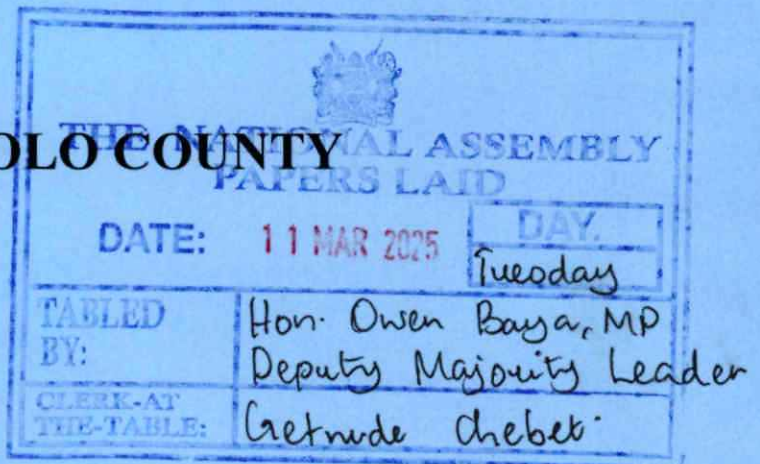 THE NATIONAL ASSEMBLY
OLO COUNTY
PAPERS LAID
DATE: 11 MAR 2025
DAY.
Tuesday
TABLED BY:
Hon. Owen Baya, MP
Deputy Majority Leader
CLERK-AT THE-TABLE:
Getrude Chebet.